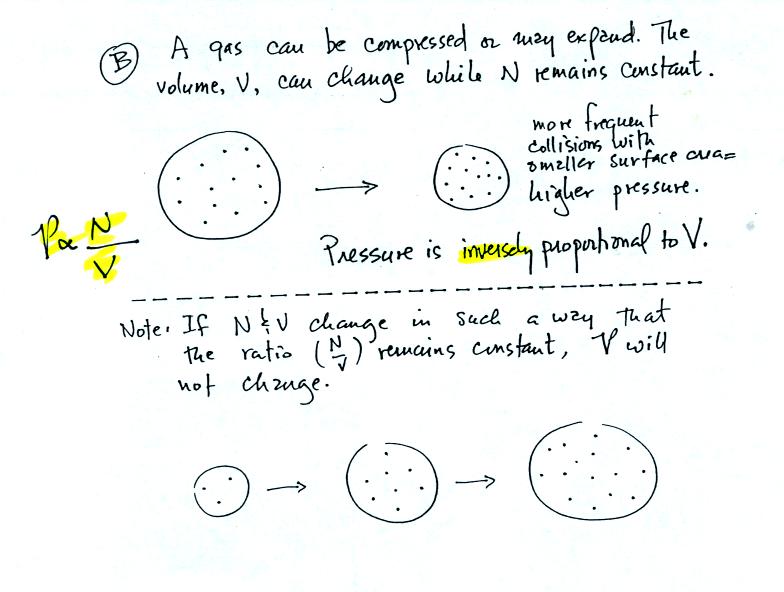 B A gas can be compressed or may expand. The
volume, V, can change while N remains constant.
more frequent
collisions with
smaller surface area =
higher pressure.
P ∝ N/V
Pressure is inversely proportional to V.
Note: If N & V change in such a way that
the ratio (N/V) remains constant, P will
not change.